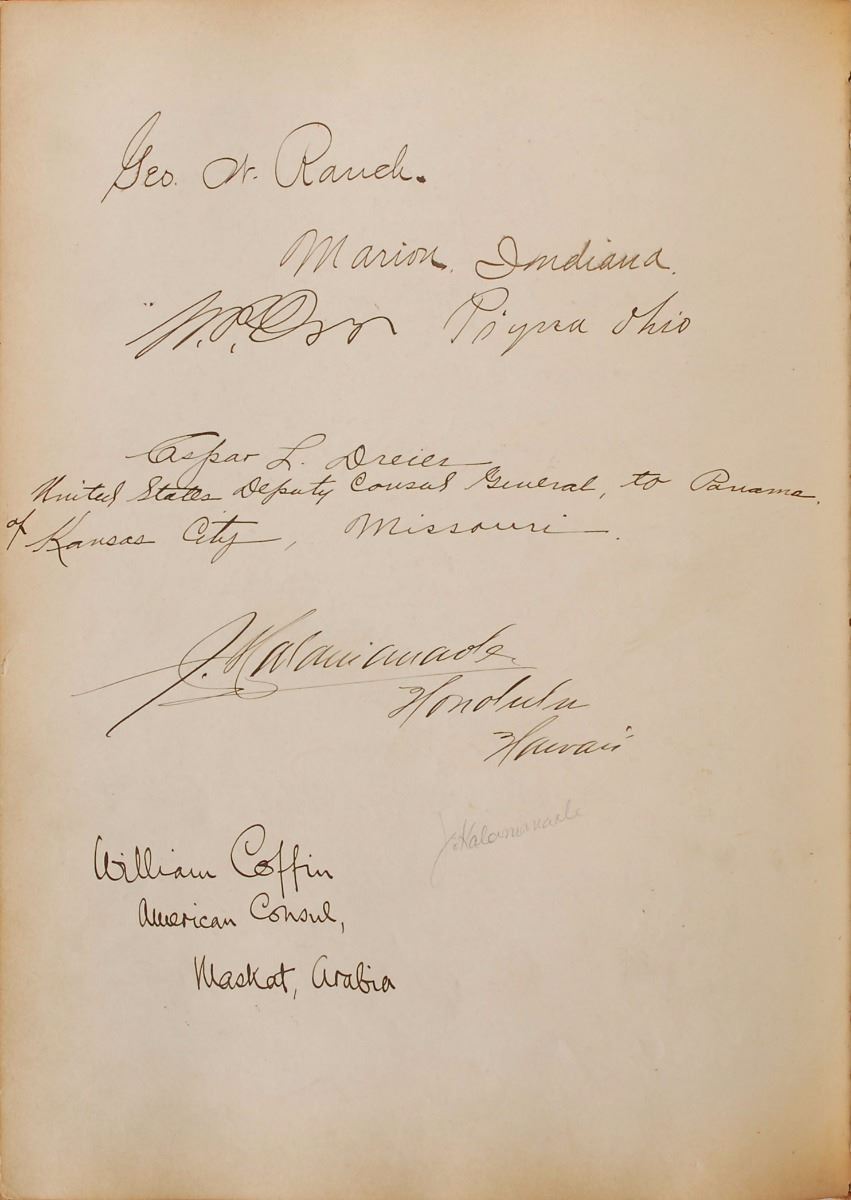 Geo. W. Rauch.
Marion, Indiana.
W. P. Orr Piqua Ohio
Caspar L. Dreier
United States Deputy Consul General, to Panama,
of Kansas City, Missouri.
J. Kalanianaole
Honolulu
Hawaii
J. Kalanianaole
William Coffin
American Consul,
Maskat, Arabia